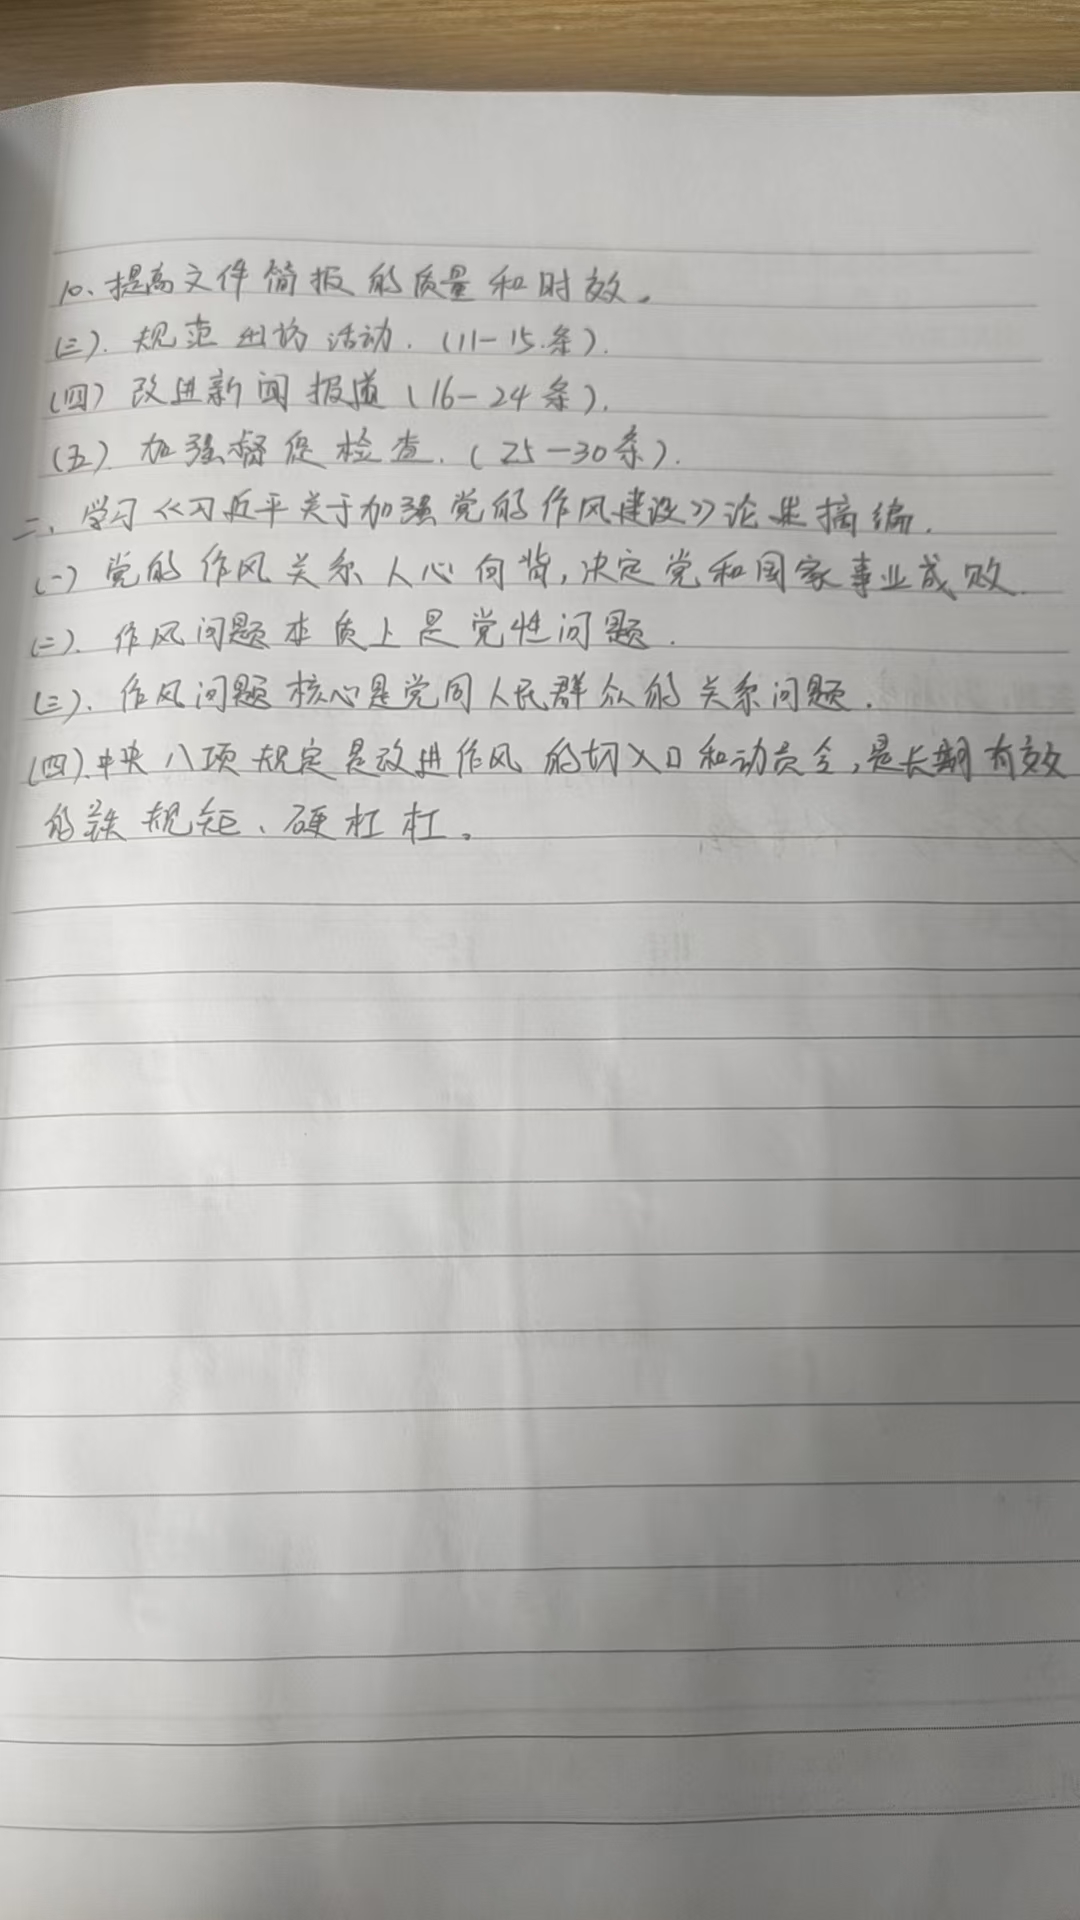 10、提高文件简报的质量和时效。
(三). 规范出访活动. (11-15.条).
(四) 改进新闻报道 (16-24条).
(五). 加强督促检查. (25-30条).
二、学习《习近平关于加强党的作风建设》论述摘编.
(一) 党的作风关系人心向背,决定党和国家事业成败.
(二). 作风问题本质上是党性问题.
(三). 作风问题核心是党同人民群众的关系问题.
(四).中央八项规定是改进作风的切入口和动员令,是长期有效
的铁规矩、硬杠杠。